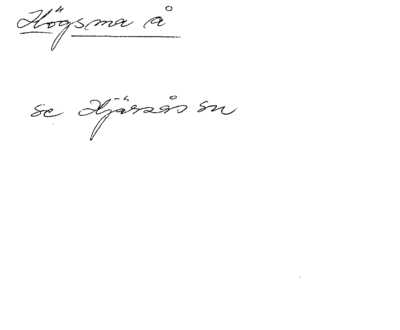 Högsma å
se Hjärsås sn